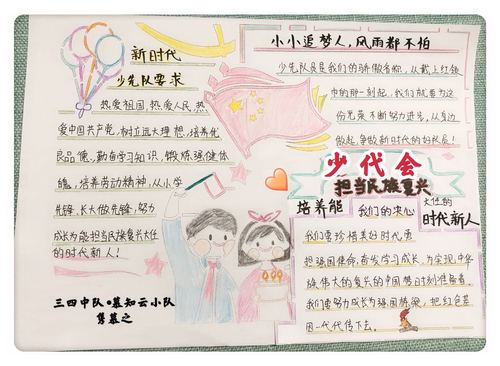 新时代
少先队要求
热爱祖国,热爱人民,热
爱中国共产党,树立远大理想,培养优
良品德,勤奋学习知识,锻炼强健体
魄,培养劳动精神,从小学
先锋,长大做先锋,努力
成长为能担当民族复兴大任
的时代新人!
三四中队•慕知云小队
小小追梦人,风雨都不怕
少先队员是我们的骄傲名称,从戴上红领
巾的那一刻起,我们就要为这
份光荣不断努力进步,从身边
做起,争做新时代的好队员!
少代会
担当民族复兴
培养能
大任的
时代新人
我们的决心
我们要珍惜美好时代
担强国使命,奋发学习成长,为实现中华
民族伟大的复兴的中国梦时刻准备着,
我们要努力成长为强国栋梁,把红色基
因一代代传下去.